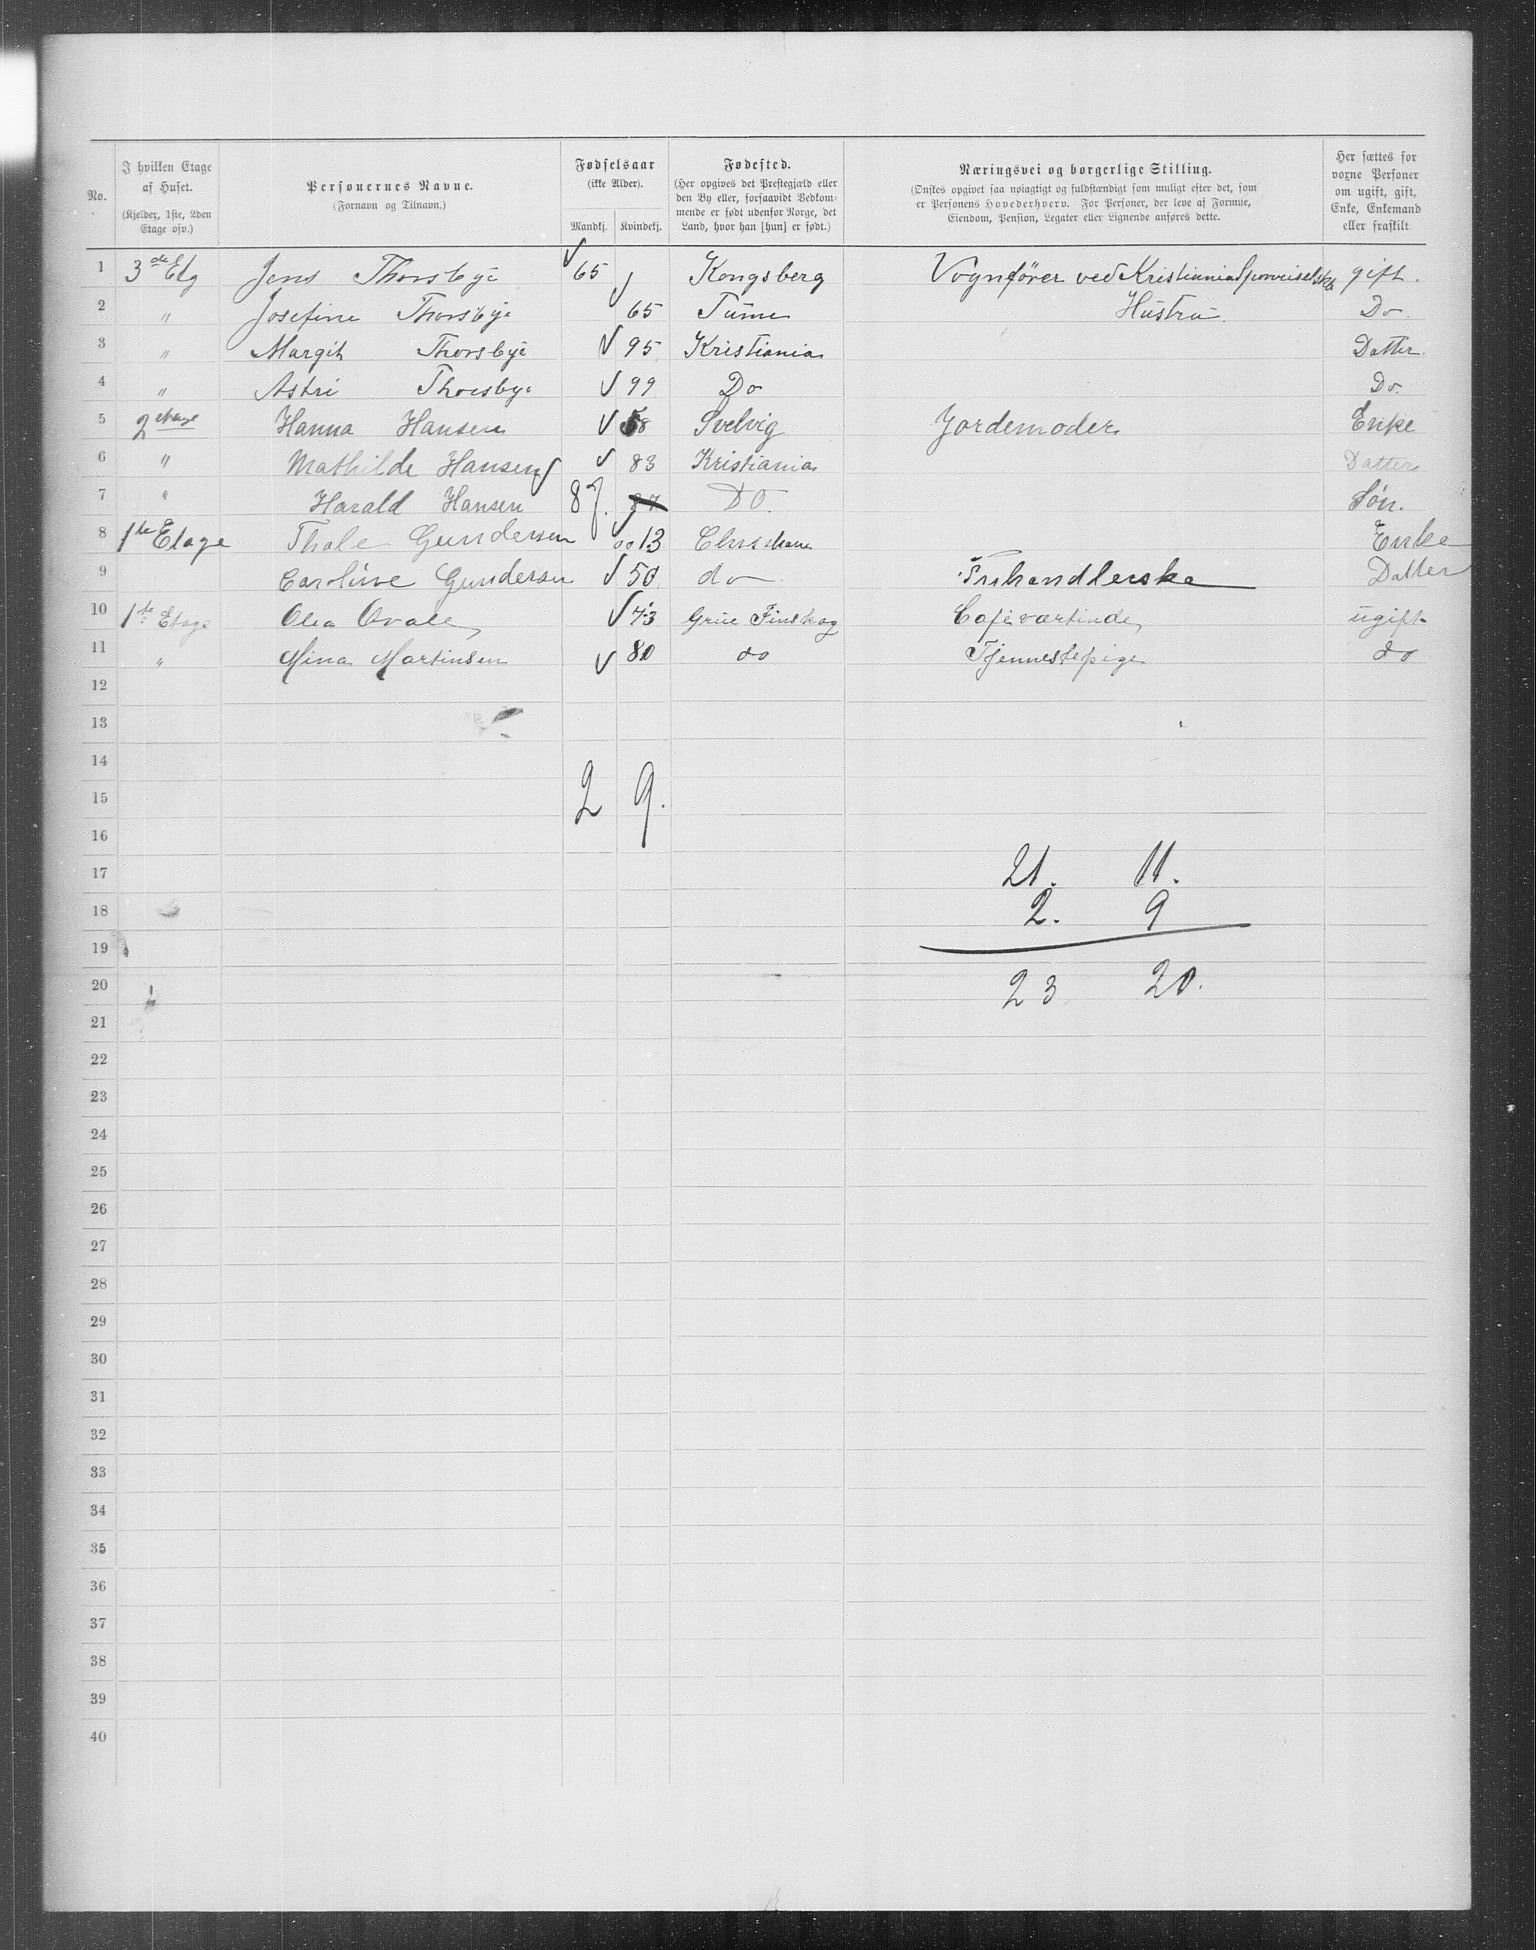 No. | I hvilken Etage af Huset. (Kjelder, 1ste, 2den Etage osv.) | Personernes Navne. (Fornavn og Tilnavn.) | Fødselsaar (ikke Alder). Mandkj. | Kvindekj. | Fødested. (Her opgives det Prestegjæld eller den By eller, forsaavidt Vedkommende er født udenfor Norge, det Land, hvor han [hun] er født.) | Næringsvei og borgerlige Stilling. (Ønskes opgivet saa nøiagtigt og fuldstændigt som muligt efter det, som er Personens Hovederhverv. For Personer, der leve af Formue, Eiendom, Pension, Legater eller Lignende anføres dette. | Her sættes for voxne Personer om ugift, gift, Enke, Enkemand eller fraskilt.
1 3de Etg Jens Thorsbye 65 Kongsberg Vognfører ved Kristiania Sporveiselsk. gift.
2 " Josefine Thorsbye 65 Tüme Hustru Do.
3 " Margit Thorsbye 95 Kristiania Datter
4 " Astri Thorsbye 99 Do Do.
5 2 etage Hanna Hansen 58 Svelvig Jordemoder Enke
6 " Mathilde Hansen 83 Kristiania Datter
7 " Harald Hansen 87. 87 DO. Søn.
8 1ste Etage Thale Gundersen 13 Enke
9 Caroline Gundersen 50 do Frihandlerske Datter
10 1ste Etage Olea Ovale 73 Grue Finskog Cafeværtinde ugift
11 " Mina Martinsen 80 do Tjennestepige do
12
13
14
15 2 9.
16
17 21. 11.
18 2. 9
19
20 23 20.
21
22
23
24
25
26
27
28
29
30
31
32
33
34
35
36
37
38
39
40